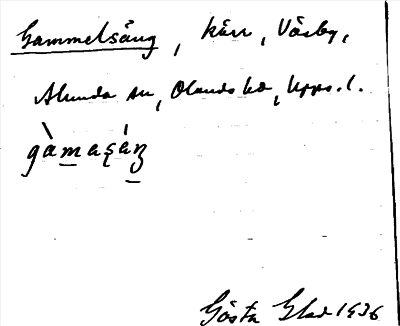 Gammelsäng, kärr, Väsby,
Alunda sn, Olands hd, Upps. l.
gàmaʂáŋ
Gösta Glad 1936